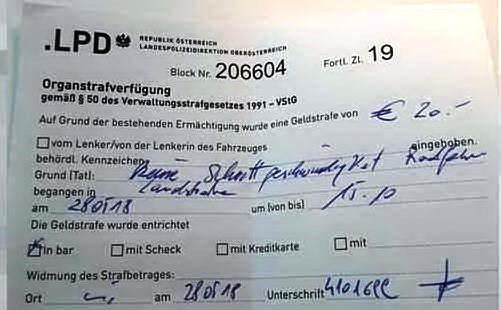 .LPD REPUBLIK ÖSTERREICH
LANDESPOLIZEIDIREKTION OBERÖSTERREICH
Block Nr. 206604 Fortl. Zl. 19
Organstrafverfügung
gemäß § 50 des Verwaltungsstrafgesetzes 1991 - VStG
Auf Grund der bestehenden Ermächtigung wurde eine Geldstrafe von € 20.-
vom Lenker/von der Lenkerin des Fahrzeuges eingehoben.
behördl. Kennzeichen
Grund (Tat): Keine Schrittgeschwindigkeit
begangen in Landstraße
am 280518 um (von bis) 15.10
Die Geldstrafe wurde entrichtet
in bar mit Scheck mit Kreditkarte mit
Widmung des Strafbetrages:
Ort am 280518 Unterschrift